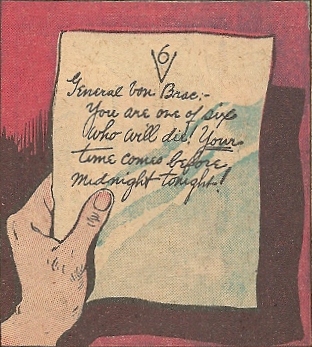 6
V
General von Brac;-
You are one of six
who will die! Your
time comes before
midnight tonight!